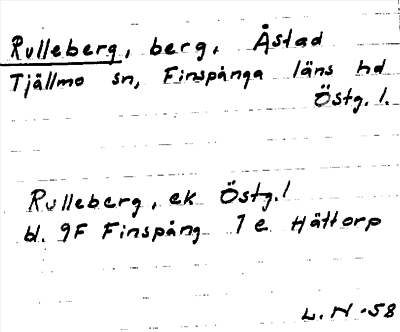 Rulleberg, berg, Åstad
Tjällmo sn, Finspånga läns hd
Östg. l.
Rulleberg, ek Östg. l
bl. 9F Finspång 1 e Hättorp
L. N -58